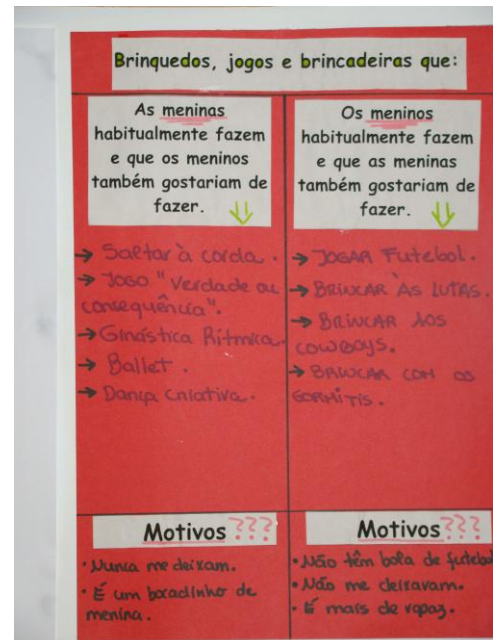 Brinquedos, jogos e brincadeiras que:
As meninas
habitualmente fazem
e que os meninos
também gostariam de
fazer.
→ Saltar à corda.
→ Jogo "Verdade ou
consequência".
→ Ginástica Rítmica.
→ Ballet.
→ Dança criativa.
Motivos ???
• Nunca me deixam.
• É um bocadinho de
menina.
Os meninos
habitualmente fazem
e que as meninas
também gostariam de
fazer.
→ JOGAR Futebol.
→ BRINCAR ÀS LUTAS.
→ BRINCAR AOS
COWBOYS.
→ BRINCAR COM OS
GORMITIS.
Motivos ???
• Não têm bola de futebol
• Não me deixavam.
• É mais de rapaz.